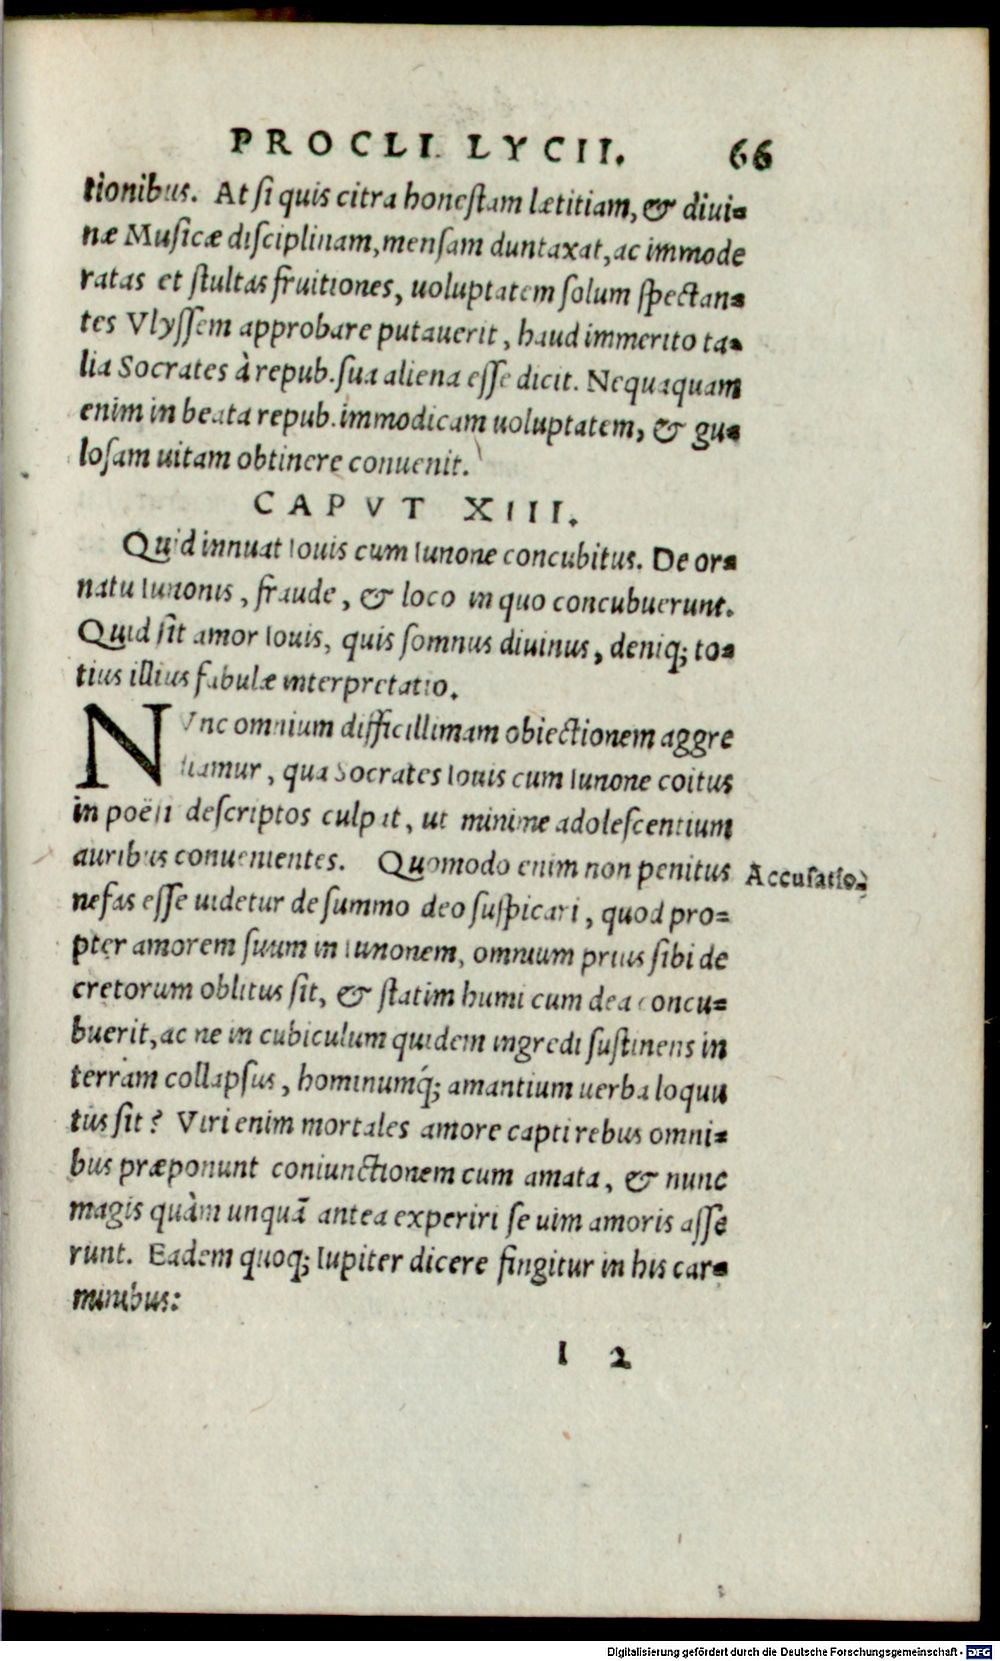 PROCLI LYCII. 66
tionibus. At ſi quis citra honeſtam lætitiam, & diui-
næ Muſicæ diſciplinam, menſam duntaxat, ac immode
ratas et ſtultas fruitiones, uoluptatem ſolum ſpectan-
tes Vlyſſem approbare putauerit, haud immerito ta-
lia Socrates à repub. ſua aliena eſſe dicit. Nequaquam
enim in beata repub. immodicam uoluptatem, & gu-
loſam uitam obtinere conuenit.
CAPVT XIII.
Quid innuat Iouis cum Iunone concubitus. De or-
natu Iunonis, fraude, & loco in quo concubuerunt.
Quid ſit amor Iouis, quis ſomnus diuinus, deniq; to-
tius illius fabulæ interpretatio.
NVnc omnium difficillimam obiectionem aggre
diamur, qua Socrates Iouis cum Iunone coitus
in poëſi deſcriptos culpat, ut minime adoleſcentium
auribus conuenientes. Quomodo enim non penitus
Accuſatio.
nefas eſſe uidetur de ſummo deo ſuſpicari, quod pro-
pter amorem ſuum in Iunonem, omnium prius ſibi de
cretorum oblitus ſit, & ſtatim humi cum dea concu-
buerit, ac ne in cubiculum quidem ingredi ſuſtinens in
terram collapſus, hominumq́; amantium uerba loquu
tus ſit? Viri enim mortales amore capti rebus omni-
bus præponunt coniunctionem cum amata, & nunc
magis quàm unquã antea experiri ſe uim amoris aſſe
runt. Eadem quoq; Iupiter dicere fingitur in his car-
minibus:
I 2
Digitalisierung gefördert durch die Deutsche Forschungsgemeinschaft - DFG